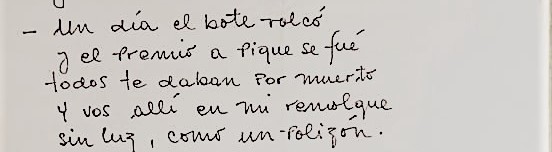 - Un día el bote volcó
y el premio a pique se fué
todos te daban por muerto
y vos allí en mi remolque
sin luz, como un polizón.